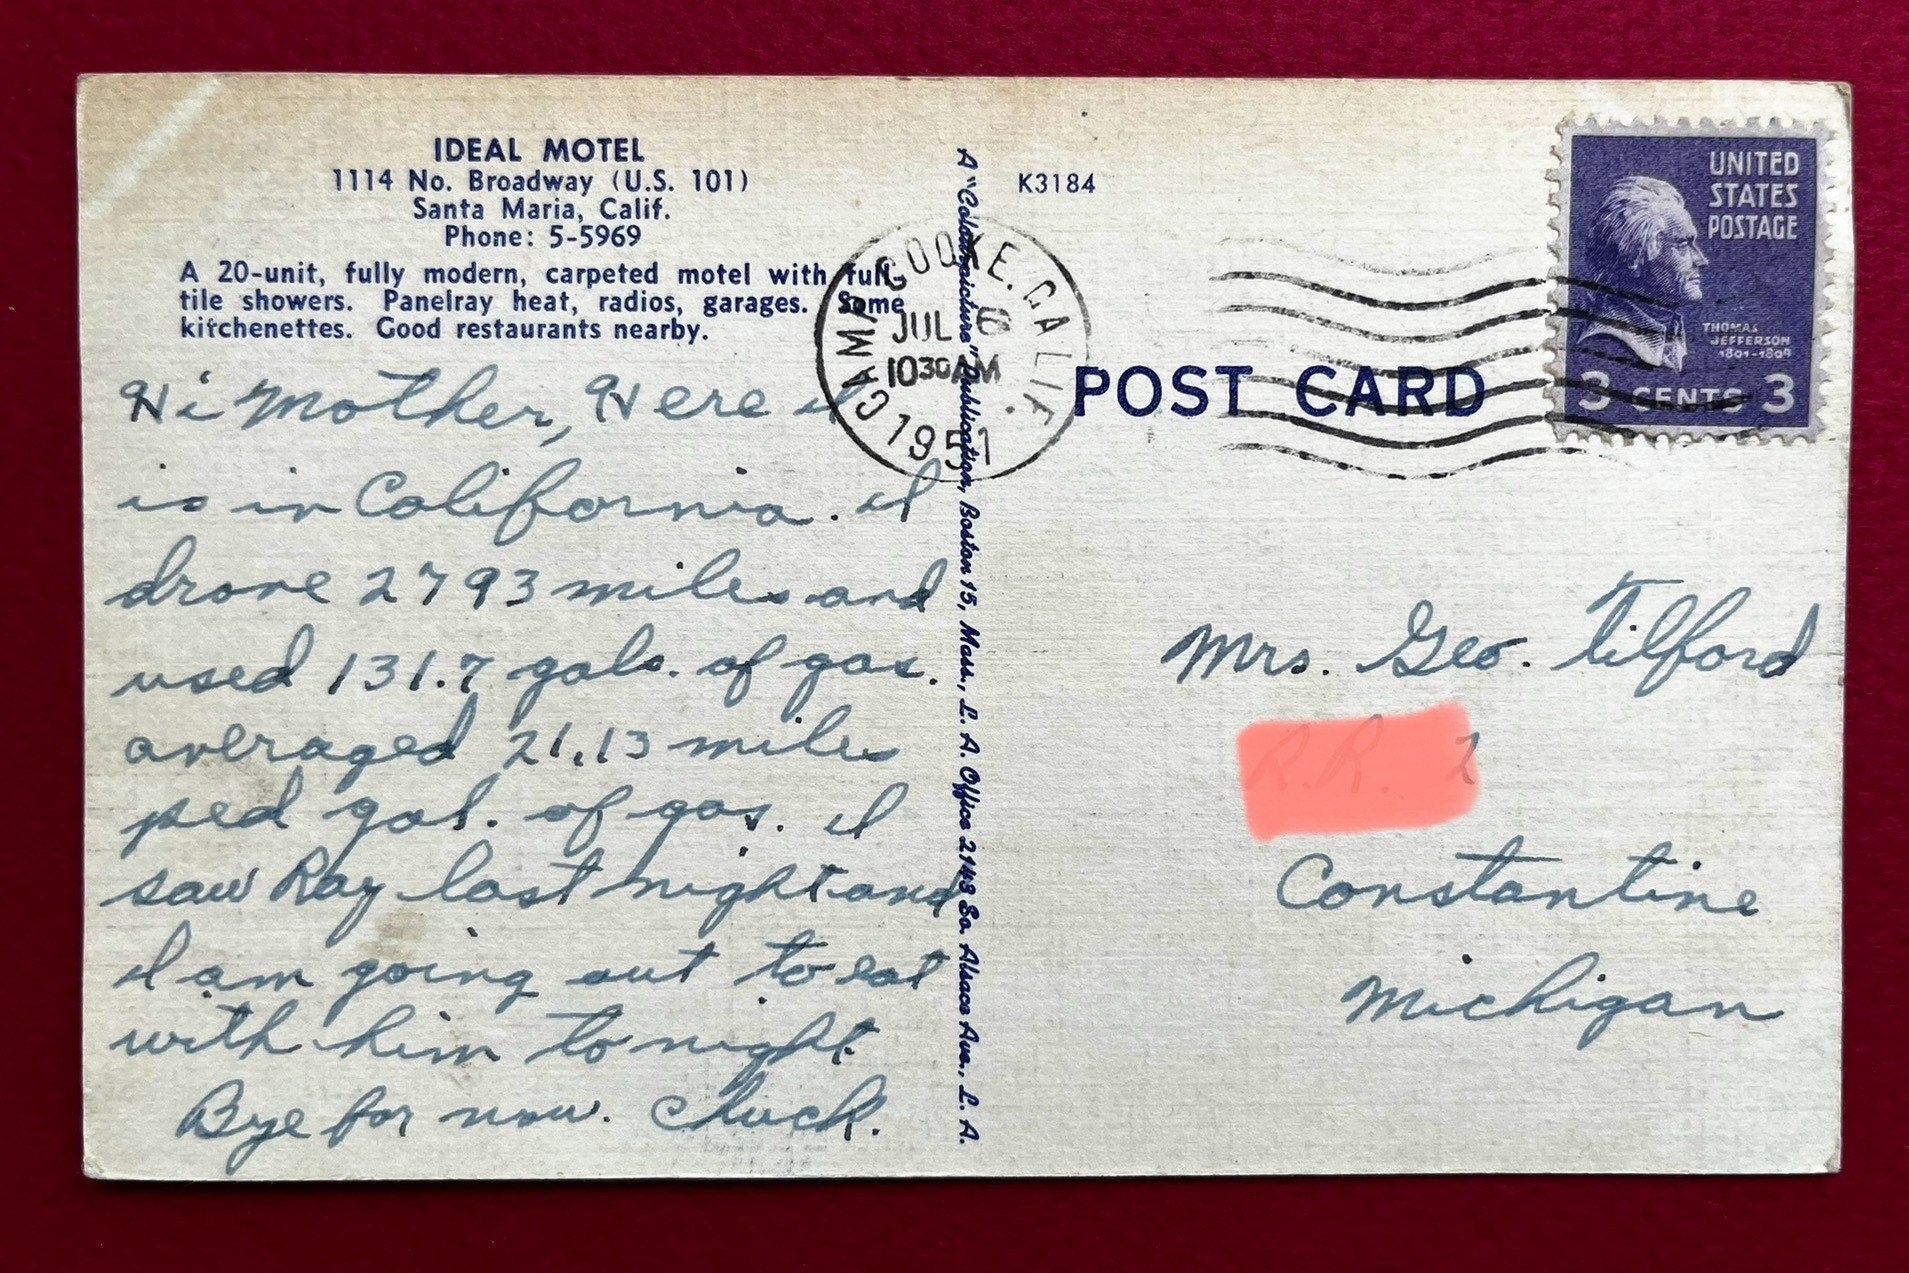 IDEAL MOTEL
1114 No. Broadway (U.S. 101)
Santa Maria, Calif.
Phone: 5-5969
A 20-unit, fully modern, carpeted motel with full-
tile showers. Panelray heat, radios, garages. Some
kitchenettes. Good restaurants nearby.
Hi Mother, Here it
is in California. I
drove 2793 miles and
used 131.7 gals. of gas.
averaged 21.13 miles
ped gal. of gas. I
saw Ray last night and
I am going out to eat
with him to night.
Bye for now. Chuck.
A "Colourpicture" Publication, Boston 15, Mass., L. A. Office 2143 So. Alsace Ave., L. A.
K3184
CAMP COOKE. CALIF.
JUL 6
10 30 AM
1951
POST CARD
UNITED
STATES
POSTAGE
THOMAS
JEFFERSON
1801-1809
3 CENTS 3
Mrs. Geo. Tilford
R.R. 2
Constantine
Michigan